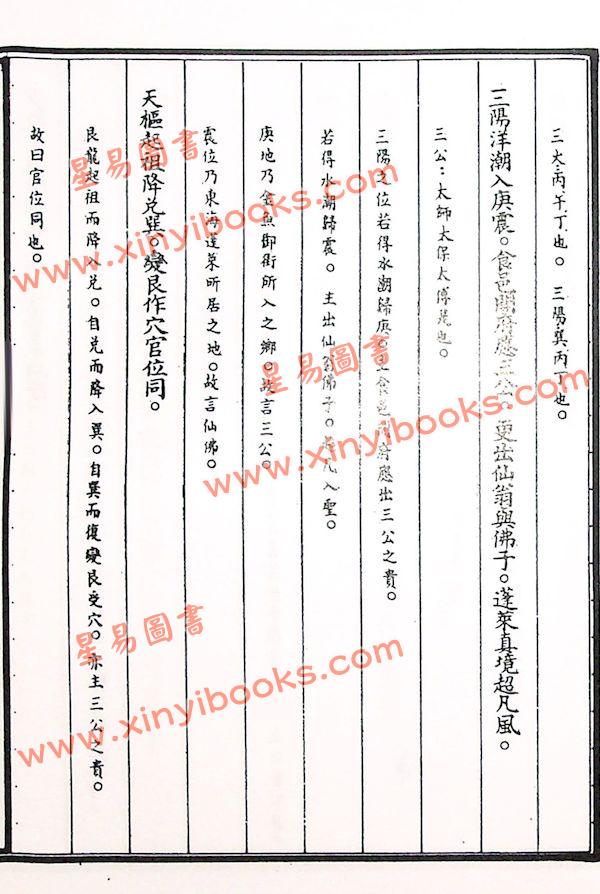 三火丙午丁也。三陽巽丙丁也。
三陽洋潮入庚震。食邑開府應三公。更出仙翁與佛子。蓬萊真境超凡風。
三公：太師太保太傅是也。
三陽之位若得水潮歸庚。主食邑開府應出三公之貴。
若得水潮歸震。主出仙翁佛子。超凡入聖。
庚地乃金魚御街所入之鄉。故言三公。
震位乃東海蓬萊所居之地。故言仙佛。
天樞起祖降兌巽。變艮作穴官位同。
艮龍起祖而降入兌。自兌而降入巽。自巽而復變艮受穴。亦主三公之貴。
故曰官位同也。
星易圖書
www.xinyibooks.com
星易圖書
www.xinyibooks.com
星易圖書
www.xinyibooks.com